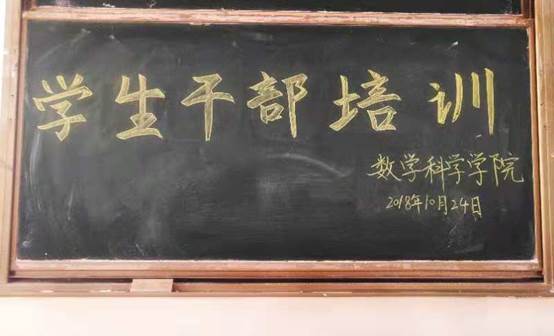 学生干部培训
数学科学学院
2018年10月24日